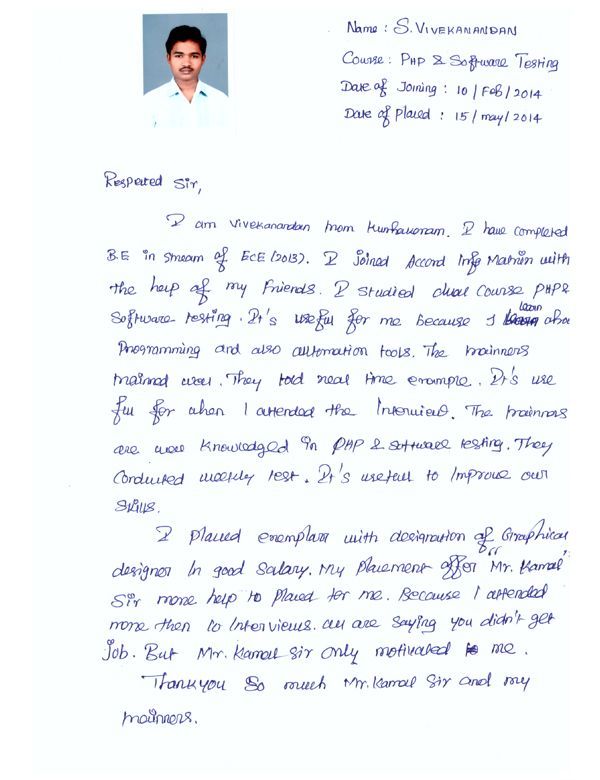 Name : S. VIVEKANANDAN
Course : PHP & Software Testing
Date of Joining : 10/Feb/2014
Date of Placed : 15/may/2014
Respected Sir,
I am Vivekanandan from Kumbakonam. I have completed
B.E in stream of ECE (2013). I Joined Accord Info Matrix with
the help of my Friends. I Studied dual Course PHP &
Software testing. It's useful for me because I learn
Programming and also automation tools. The trainners
trainned well. They told real time example. It's use
ful for when I attended the Interview. The trainners
are well knowledged in PHP & Software testing. They
Conducted weekly test. It's usefull to Improve our
Skills.
I Placed with designation of Graphical
designer In good Salary. My Placement offer "Mr. Kamal"
Sir more help to Placed for me. Because I attended
more then 10 Interviews. all are Saying you didn't get
Job. But Mr. Kamal Sir Only motivated to me.
Thankyou So much Mr. Kamal Sir and my
trainners.